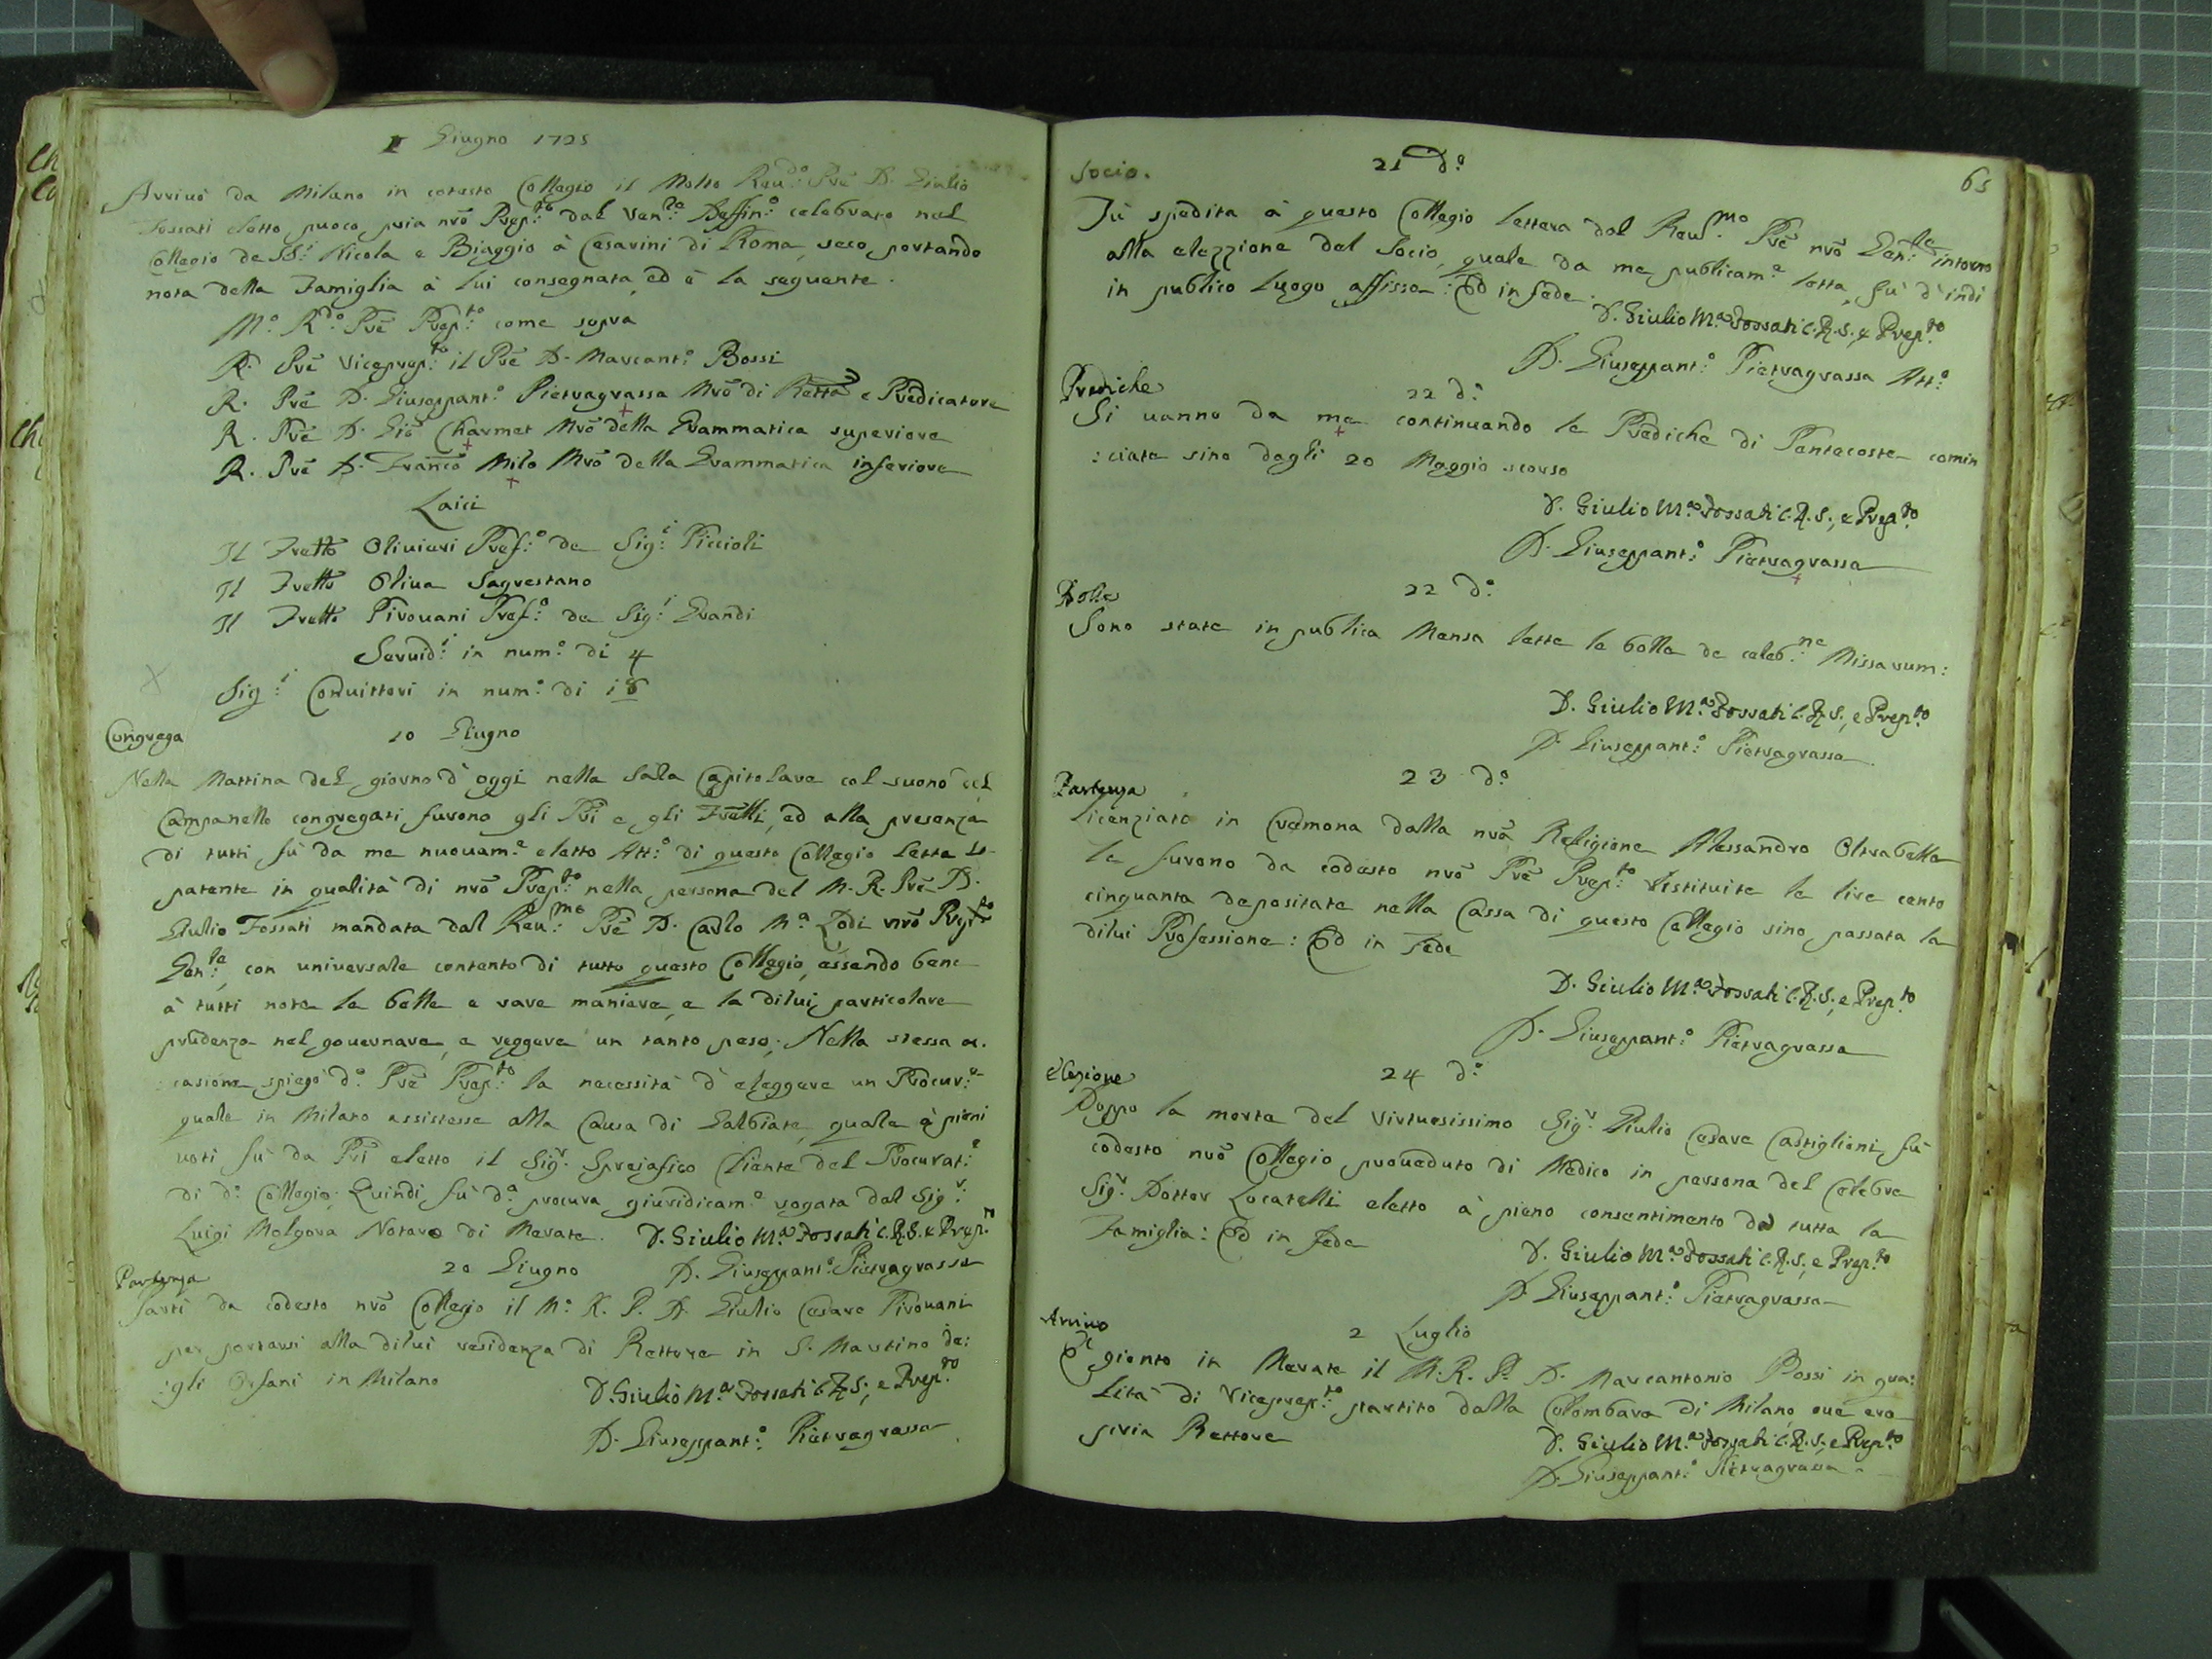 1 Giugno 1725
Arrivò da Milano in cotesto Collegio il Molto Reu:do Pre D. Giulio
Fossati eletto puoco pria nro Prep:to dal Ven:le Deffin:o celebrato nel
Collegio de SS:i Nicola e Biaggio à Cesarini di Roma, seco portando
nota della Famiglia à lui consegnata, ed è la seguente.
M:o R:do Pre Prep:to come sopra
R. Pre Viceprep:to il Pre D. Marcant:o Bossi
R. Pre D. Giuseppant:o Pietragrassa Mro di Retto e Predicatore
R. Pre D. Gio Charmet Mro della Grammatica superiore
R. Pre D. Franco Milo Mro della Grammatica inferiore
Laici
Il Fratto Oliuieri Pref:o de Sig:i Piccioli
Il Fratto Oliua Sagrestano
Il Fratto Pirouani Pref:o de Sig:i Grandi
Seruid:i in num:o di 4
Sig:i Conuittori in num:o di 18
Congrega
10 Giugno
Nella Mattina del giorno d'oggi nella Sala Capitolare col suono del
Campanello congregati furono gli Pri e gli Fratti, ed alla presenza
di tutti fù da me nuouam:e eletto Att:o di questo Collegio letta la
patente in qualità di nro Prep:to nella persona del M. R. Pre D.
Giulio Fossati mandata dal Reu:mo Pre D. Carlo M:a Lodi nro Prep:to
Gen:le, con universale contento di tutto questo Collegio, essendo bene
à tutti note le belle e rare maniere, e la dilui particolare
prudenza nel gouernare, e reggere un tanto peso. Nella stessa oc.
:casione, spiegò d:o Pre Prep:to la necessità d'eleggere un Procur:e
quale in Milano assistesse alla Causa di Galbiate, quale à pieni
uoti fù da Pri eletto il Sig:r Spreiafico Cliente del Procurat:e
di d:o Collegio: Quindi fù d:a procura giuridicam:e rogata dal Sig:r
Luigi Molgora Notaro di Merate. D. Giulio M:a Fossati C. R. S. e Prep.to
20 Giugno D. Giuseppant:o Pietragrassa
Partenza
Partì da codesto nro Collegio il M:o R. P. D. Giulio Cesare Pirouani
per portarsi alla dilui residenza di Rettore in S. Martino de:
:gli Orfani in Milano D. Giulio M:a Fossati C. R. S., e Prep.to
D. Giuseppant:o Pietragrassa
65
Socio.
21 d:o
Fù spedita à questo Collegio lettera dal Reu:mo Pre nro Gen:le intorno
alla elezzione del Socio, quale da me publicam:e letta, fù d'indi
in publico luogo affissa: Ed in fede.
D. Giulio M:a Fossati C. R. S., e Prep.to
D. Giuseppant:o Pietragrassa Att:o
Prediche
22 d:o
Si uanno da me continuando le Prediche di Pentecoste comin
:ciate sino dagli 20 Maggio scorso
D. Giulio M:a Fossati C. R. S., e Prep.to
D. Giuseppant:o Pietragrassa
Bolle
22 d:o
Sono state in publica Mensa lette le bolle de celeb:ne Missarum:
D. Giulio M:a Fossati C. R. S., e Prep.to
D. Giuseppant:o Pietragrassa
Partenza
23 d:o
Licenziato in Cremona dalla nra Religione Alessandro Oltrabella
le furono da codesto nro Pre Prep:to restituite le lire cento
cinquanta depositate nella Cassa di questo Collegio sino passata la
dilui Professione: Ed in Fede
D. Giulio M:a Fossati C. R. S., e Prep.to
D. Giuseppant:o Pietragrassa
Elezione
24 d:o
Doppo la morte del Virtuosissimo Sig:r Giulio Cesare Castiglioni, fù
codesto nro Collegio proueduto di Medico in persona del Celebre
Sig:r Dottor Locatelli eletto à pieno consentimento da tutta la
Famiglia: Ed in fede
D. Giulio M:a Fossati C. R. S., e Prep.to
D. Giuseppant:o Pietragrassa
Arriuo
2 Luglio
È gionto in Merate il M. R. P. D. Marcantonio Bossi in qua:
lità di Viceprep:to partito dalla Colombara di Milano, oue era
pria Rettore
D. Giulio M:a Fossati C. R. S., e Prep.to
D. Giuseppant:o Pietragrassa